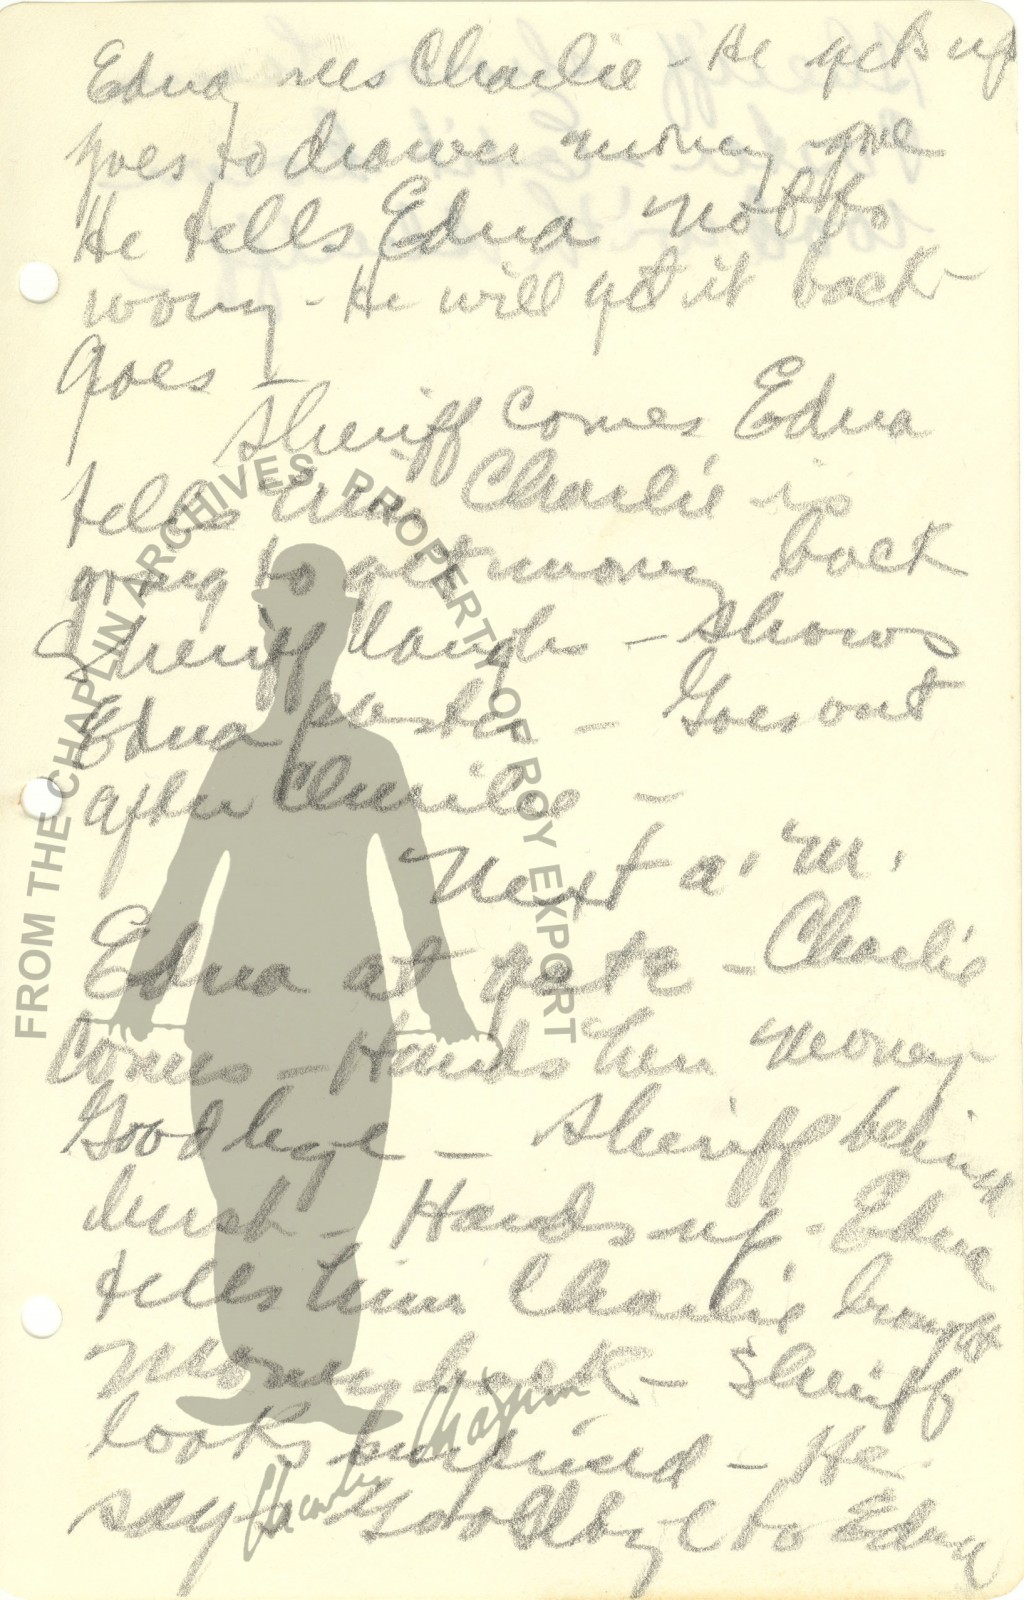 Edna sees Charlie - He gets up
goes to drawer money gone
He tells Edna not to
worry - He will get it back
Goes -
Sheriff comes Edna
tells him Charlie is
going to get money back
Sheriff laughs - shows
Edna poster - Goes out
after Charlie -
Next a.m.
Edna at gate - Charlie
comes - Hands her money
Goodbye - Sheriff behind
bush - Hands up - Edna
tells him Charlie brought
money back - Sheriff
looks surprised - He
says Goodbye to Edna
FROM THE CHAPLIN ARCHIVES, PROPERTY OF ROY EXPORT
Charlie Chaplin